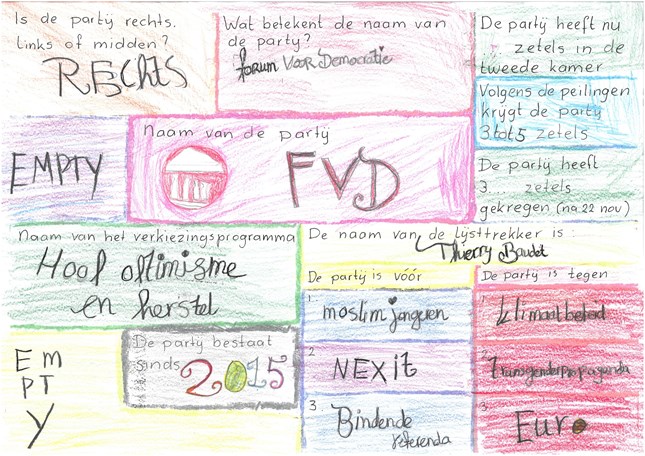 Is de partij rechts,
links of midden?
RECHTS
Wat betekent de naam van
de party?
forum Voor Democratie
De partij heeft nu
..... zetels in de
tweede kamer
Volgens de peilingen
krijgt de party
3 tot 5 zetels
De partij heeft
3.... zetels
gekregen (na 22 nov)
EMPTY
Naam van de party
FVD
Naam van het verkiezingsprogramma
Hoof oftimisme
en herstel
De naam van de lijsttrekker is:
Thierry Baudet
De partij is vóór
1
moslim jongeren
2
NEXit
3
Bindende
referenda
De partij is tegen
1
klimaatbeleid
2
transgenderpropaganda
3
Euro
De party bestaat
sinds
2015
EM
PT
Y